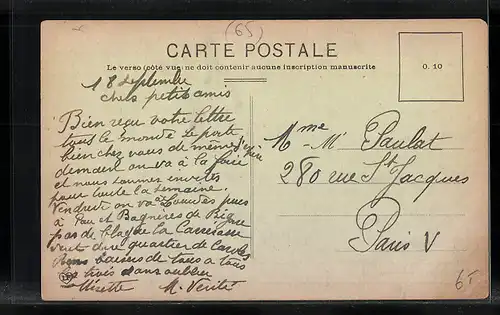 (65)
CARTE POSTALE
Le verso (côté vue) ne doit contenir aucune inscription manuscrite
0. 10
18 Septembre
chers petits amis
Bien reçu votre lettre
tout le monde se porte
bien chez vous de même j'espère
demain on va à la foire
et nous sommes invités
pour toute la semaine.
Vendredi on va à Lourdes puis
à Pau et Bagnères de Bigorre
pas de
veut dire quartier de
Bons baisers de tous à tous
les trois sans oublier
M. Verité
Mme M. Paulat
280 rue St Jacques
Paris V
65